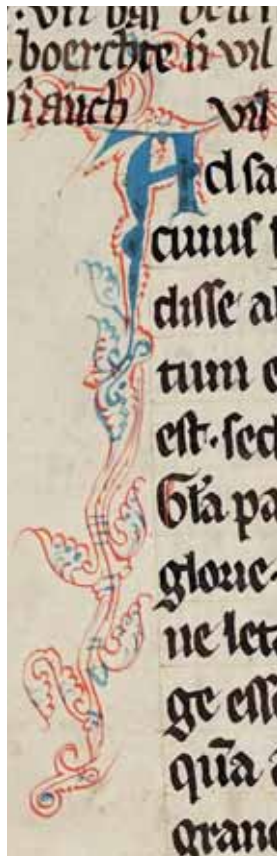 : vn̄ bar
boerchte si vil
auch vil
Ad sa
cuius
disse a
tum e
est. sed
Gl̄a pa
glorie
ne leta
ge esse
qūa a
grand